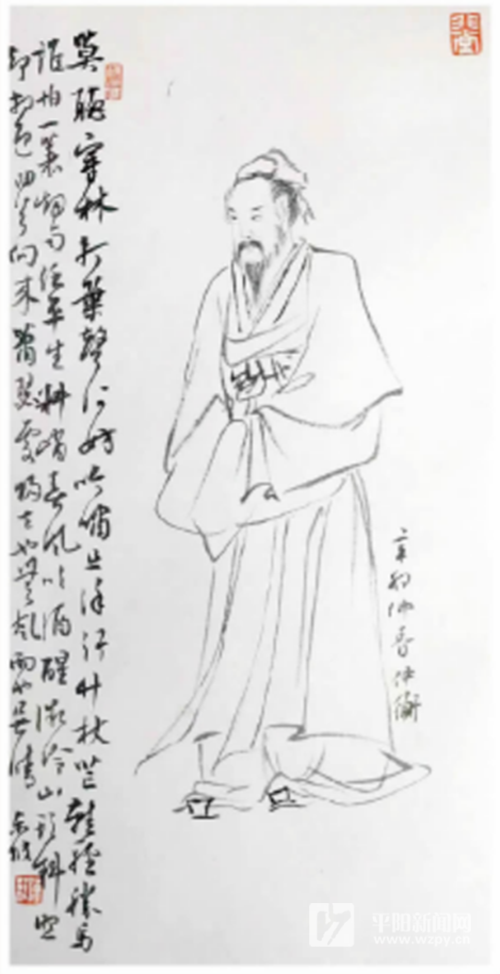 莫聽穿林打葉聲何妨吟嘯且徐行竹杖芒鞋輕勝馬
誰怕一蓑烟雨任平生料峭春風吹酒醒微冷山頭斜照
却相迎回首向來蕭瑟處歸去也無風雨也無晴
辛丑仲春仲衡
平阳新闻网
www.wzpy.cn